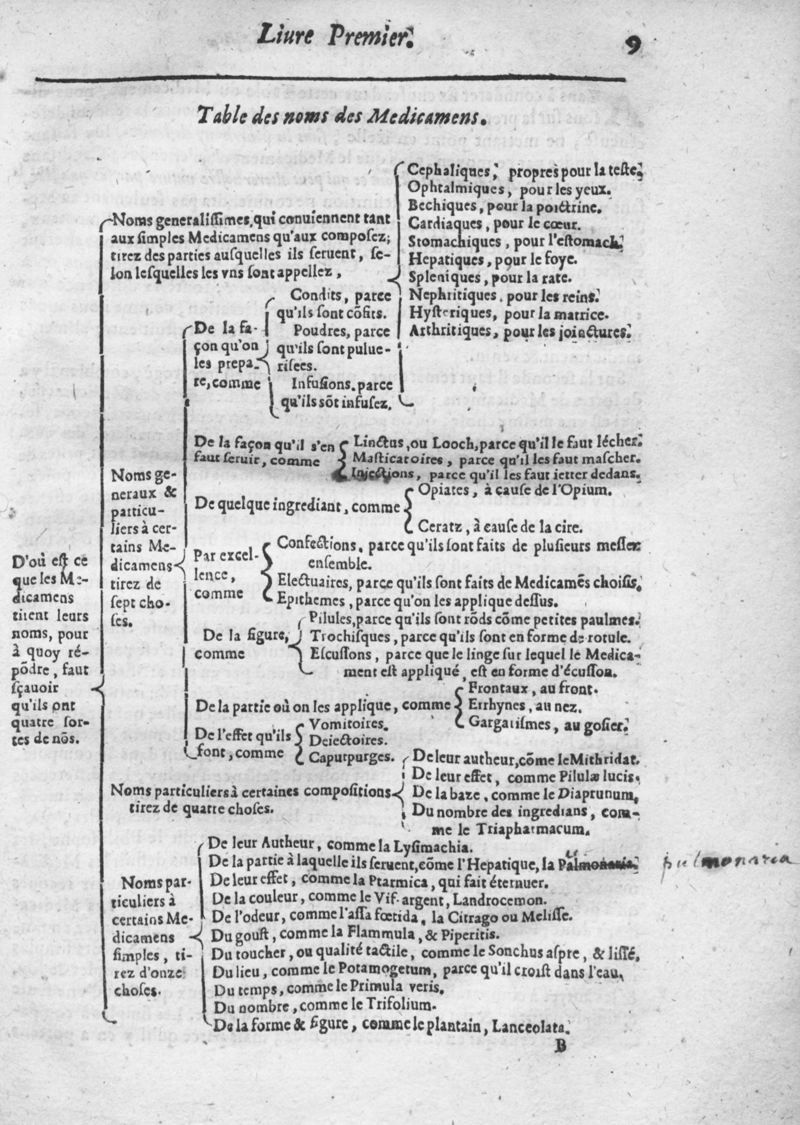 Liure Premier.
9
Table des noms des Medicamens.
D'où est ce
que les Me-
dicamens
tirent leurs
noms, pour
à quoy ré-
põdre, faut
sçauoir
qu'ils ont
quatre sor-
tes de nõs.
Noms generalissimes, qui conuiennent tant
aux simples Medicamens qu'aux composez;
tirez des parties ausquelles ils seruent, se-
lon lesquelles les vns sont appellez,
Cephaliques, propres pour la teste.
Ophtalmiques, pour les yeux.
Bechiques, pour la poictrine.
Cardiaques, pour le cœur.
Stomachiques, pour l'estomach.
Hepatiques, pour le foye.
Spleniques, pour la rate.
Nephritiques, pour les reins.
Hysteriques, pour la matrice.
Arthritiques, pour les joinctures.
Noms ge-
neraux &
particu-
liers à cer-
tains Me-
dicamens
tirez de
sept cho-
ses.
De la fa-
çon qu'on
les prepa-
re, comme
Condits, parce
qu'ils sont cõfits.
Poudres, parce
qu'ils sont pulue-
risees.
Infusions, parce
qu'ils sõt infusez.
De la façon qu'il s'en
faut seruir, comme
Linctus, ou Looch, parce qu'il le faut lécher.
Masticatoires, parce qu'il les faut mascher.
Injections, parce qu'il les faut ietter dedans.
De quelque ingrediant, comme
Opiates, à cause de l'Opium.
Ceratz, à cause de la cire.
Par excel-
lence,
comme
Confections, parce qu'ils sont faits de plusieurs meslez
ensemble.
Electuaires, parce qu'ils sont faits de Medicamẽs choisis.
Epithemes, parce qu'on les applique dessus.
De la figure,
comme
Pilules, parce qu'ils sont rõds cõme petites paulmes.
Trochisques, parce qu'ils sont en forme de rotule.
Escussons, parce que le linge sur lequel le Medica-
ment est appliqué, est en forme d'écusson.
De la partie où on les applique, comme
Frontaux, au front.
Errhynes, au nez.
Gargarismes, au gosier.
De l'effet qu'ils
font, comme
Vomitoires.
Deiectoires.
Caputpurges.
Noms particuliers à certaines compositions
tirez de quatre choses.
De leur autheur, cõme le Mithridat.
De leur effet, comme Pilulæ lucis.
De la baze, comme le Diaprunum,
Du nombre des ingredians, com-
me le Triapharmacum.
Noms par-
ticuliers à
certains Me-
dicamens
simples, ti-
rez d'onze
choses.
De leur Autheur, comme la Lysimachia.
De la partie à laquelle ils seruent, cõme l'Hepatique, la Palmonaria.
pulmonaria
De leur effet, comme la Ptarmica, qui fait éternuer.
De la couleur, comme le Vif-argent, Landrocemon.
De l'odeur, comme l'assa fœtida, la Citrago ou Melisse.
Du goust, comme la Flammula, & Piperitis.
Du toucher, ou qualité tactile, comme le Sonchus aspre, & lissé,
Du lieu, comme le Potamogetum, parce qu'il croist dans l'eau,
Du temps, comme le Primula veris.
Du nombre, comme le Trifolium.
De la forme & figure, comme le plantain, Lanceolata.
B